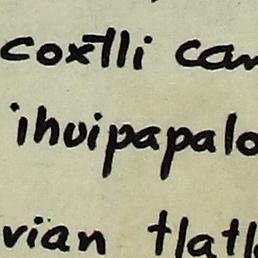 coxtlli can
ihuipapalo
vian tlatl